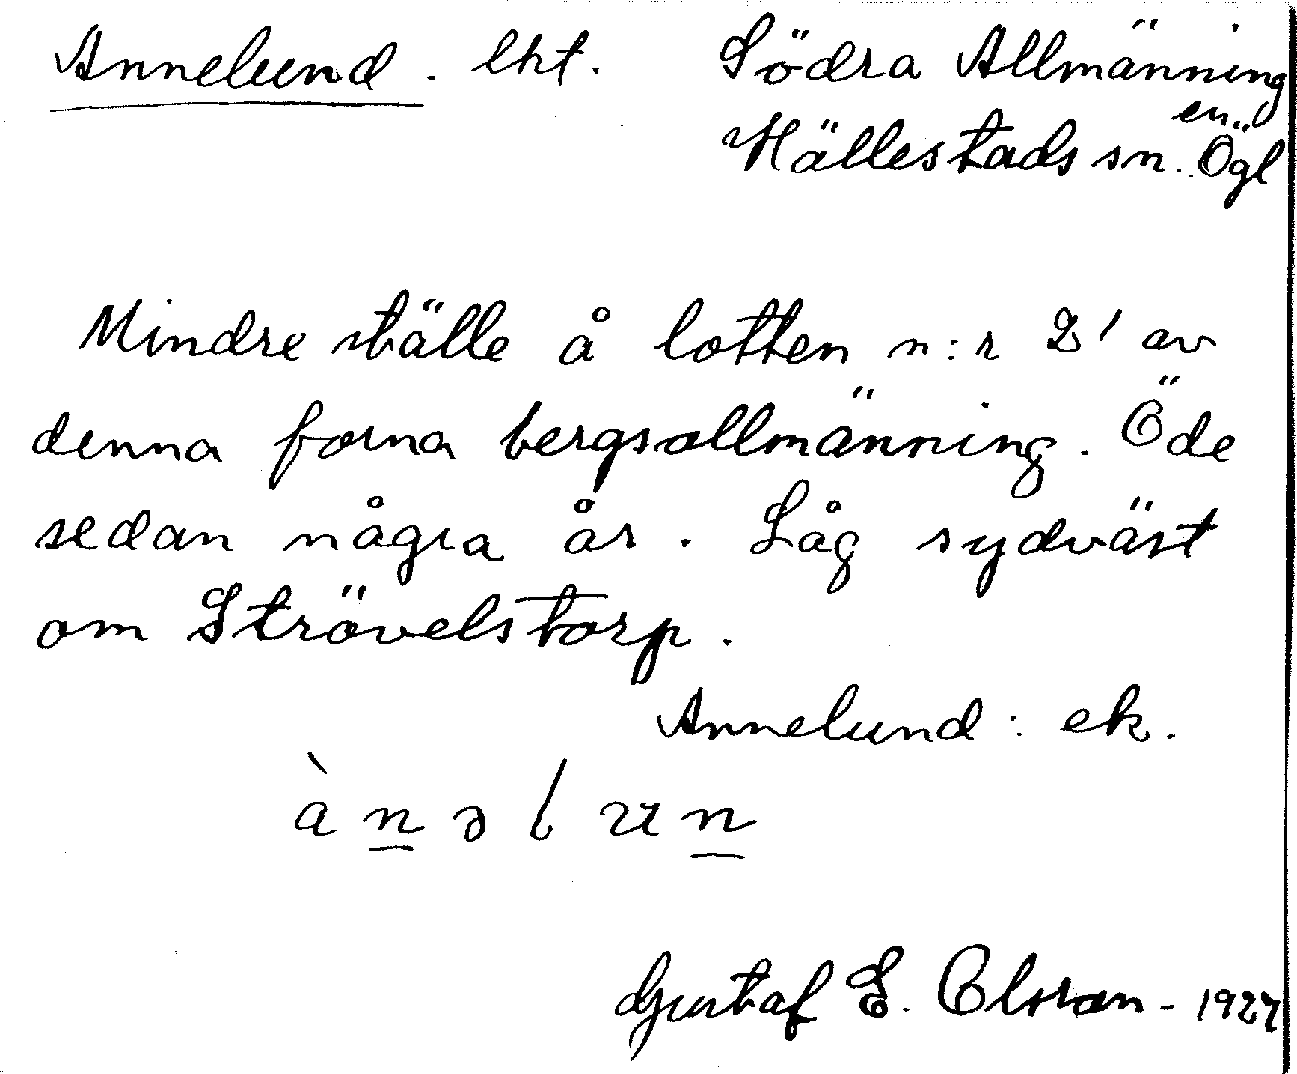 Annelund. lht. Södra Allmänning
en
Hällestads sn. Ögl
Mindre ställe å lotten n:r 21 av
denna forna bergsallmänning. Öde
sedan några år. Låg sydväst
om Strövelstorp.
Annelund: ek.
ànəlun
Gustaf E. Olsson - 1927